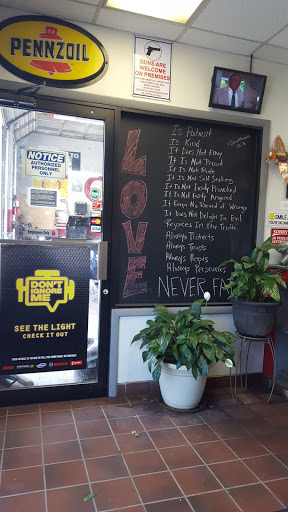 PENNZOIL
GUNS ARE
WELCOME
ON PREMISES
NOTICE
AUTHORIZED
PERSONNEL
ONLY
Employees Only
DON'T
IGNORE
ME
SEE THE LIGHT
CHECK IT OUT
LOVE
Is Patient
Is Kind
It Does Not Envy
It Is Not Proud
It Is Not Rude
It Is Not Self Seeking
It Is Not Easily Provoked
It Is Not Easily Angered
It Keeps No Record of Wrongs
It Does Not Delight In Evil
Rejoices In the Truth
Always Protects
Always Trusts
Always Hopes
Always Perseveres
NEVER
SMILE